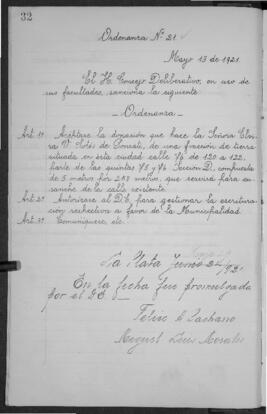 32
Ordenanza Nº 21
Mayo 13 de 1921
El H. Concejo Deliberativo, en uso de
sus facultades, sanciona la siguiente
Ordenanza
Art 1º Acéptase la donación que hace la Señora
Vª de de una fracción de tierra
situada en esta ciudad calle 76 de 120 a 122,
parte de las quintas 75 y 76 Sección D, compuesta
de 5 metros por 258 metros, que servirá para en-
sanche de la calle existente.
Art 2º Autorízase al D.E. para gestionar la escritura-
ción respectiva a favor de la Municipalidad.
Art 3º Comuníquese, etc.
La Plata Junio 24/921
En la fecha fué promulgada
por el D.E.
Felix
Miguel Luis